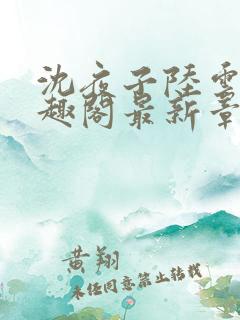 沈夜子陸雪
趣阁最新章
黄翔
未经同意禁止转载